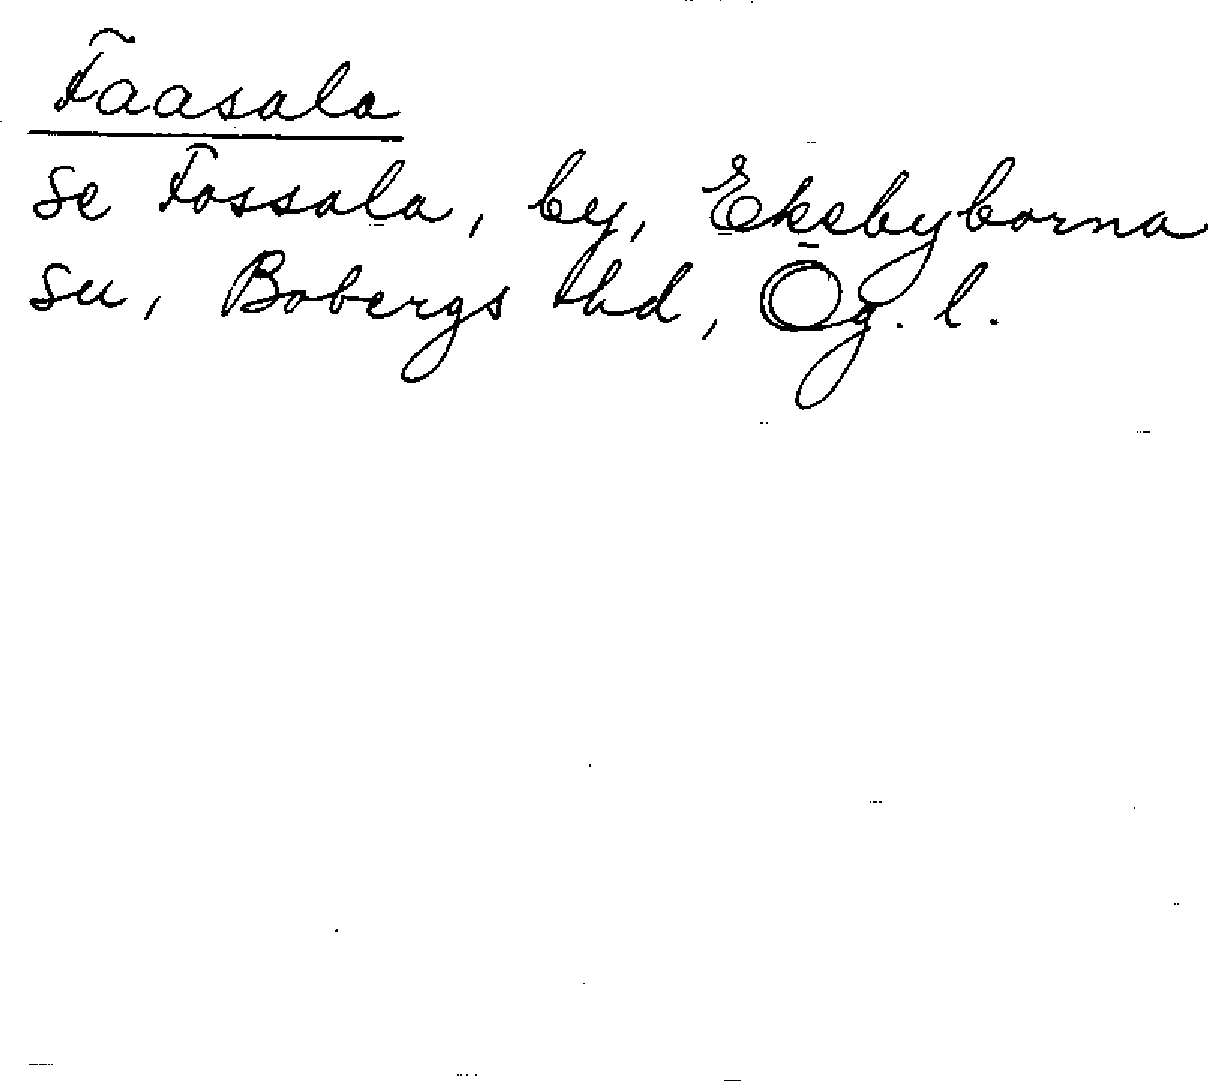 Faasala
se Fossala, by, Ekebyborna
sn, Bobergs hd, Ög. l.